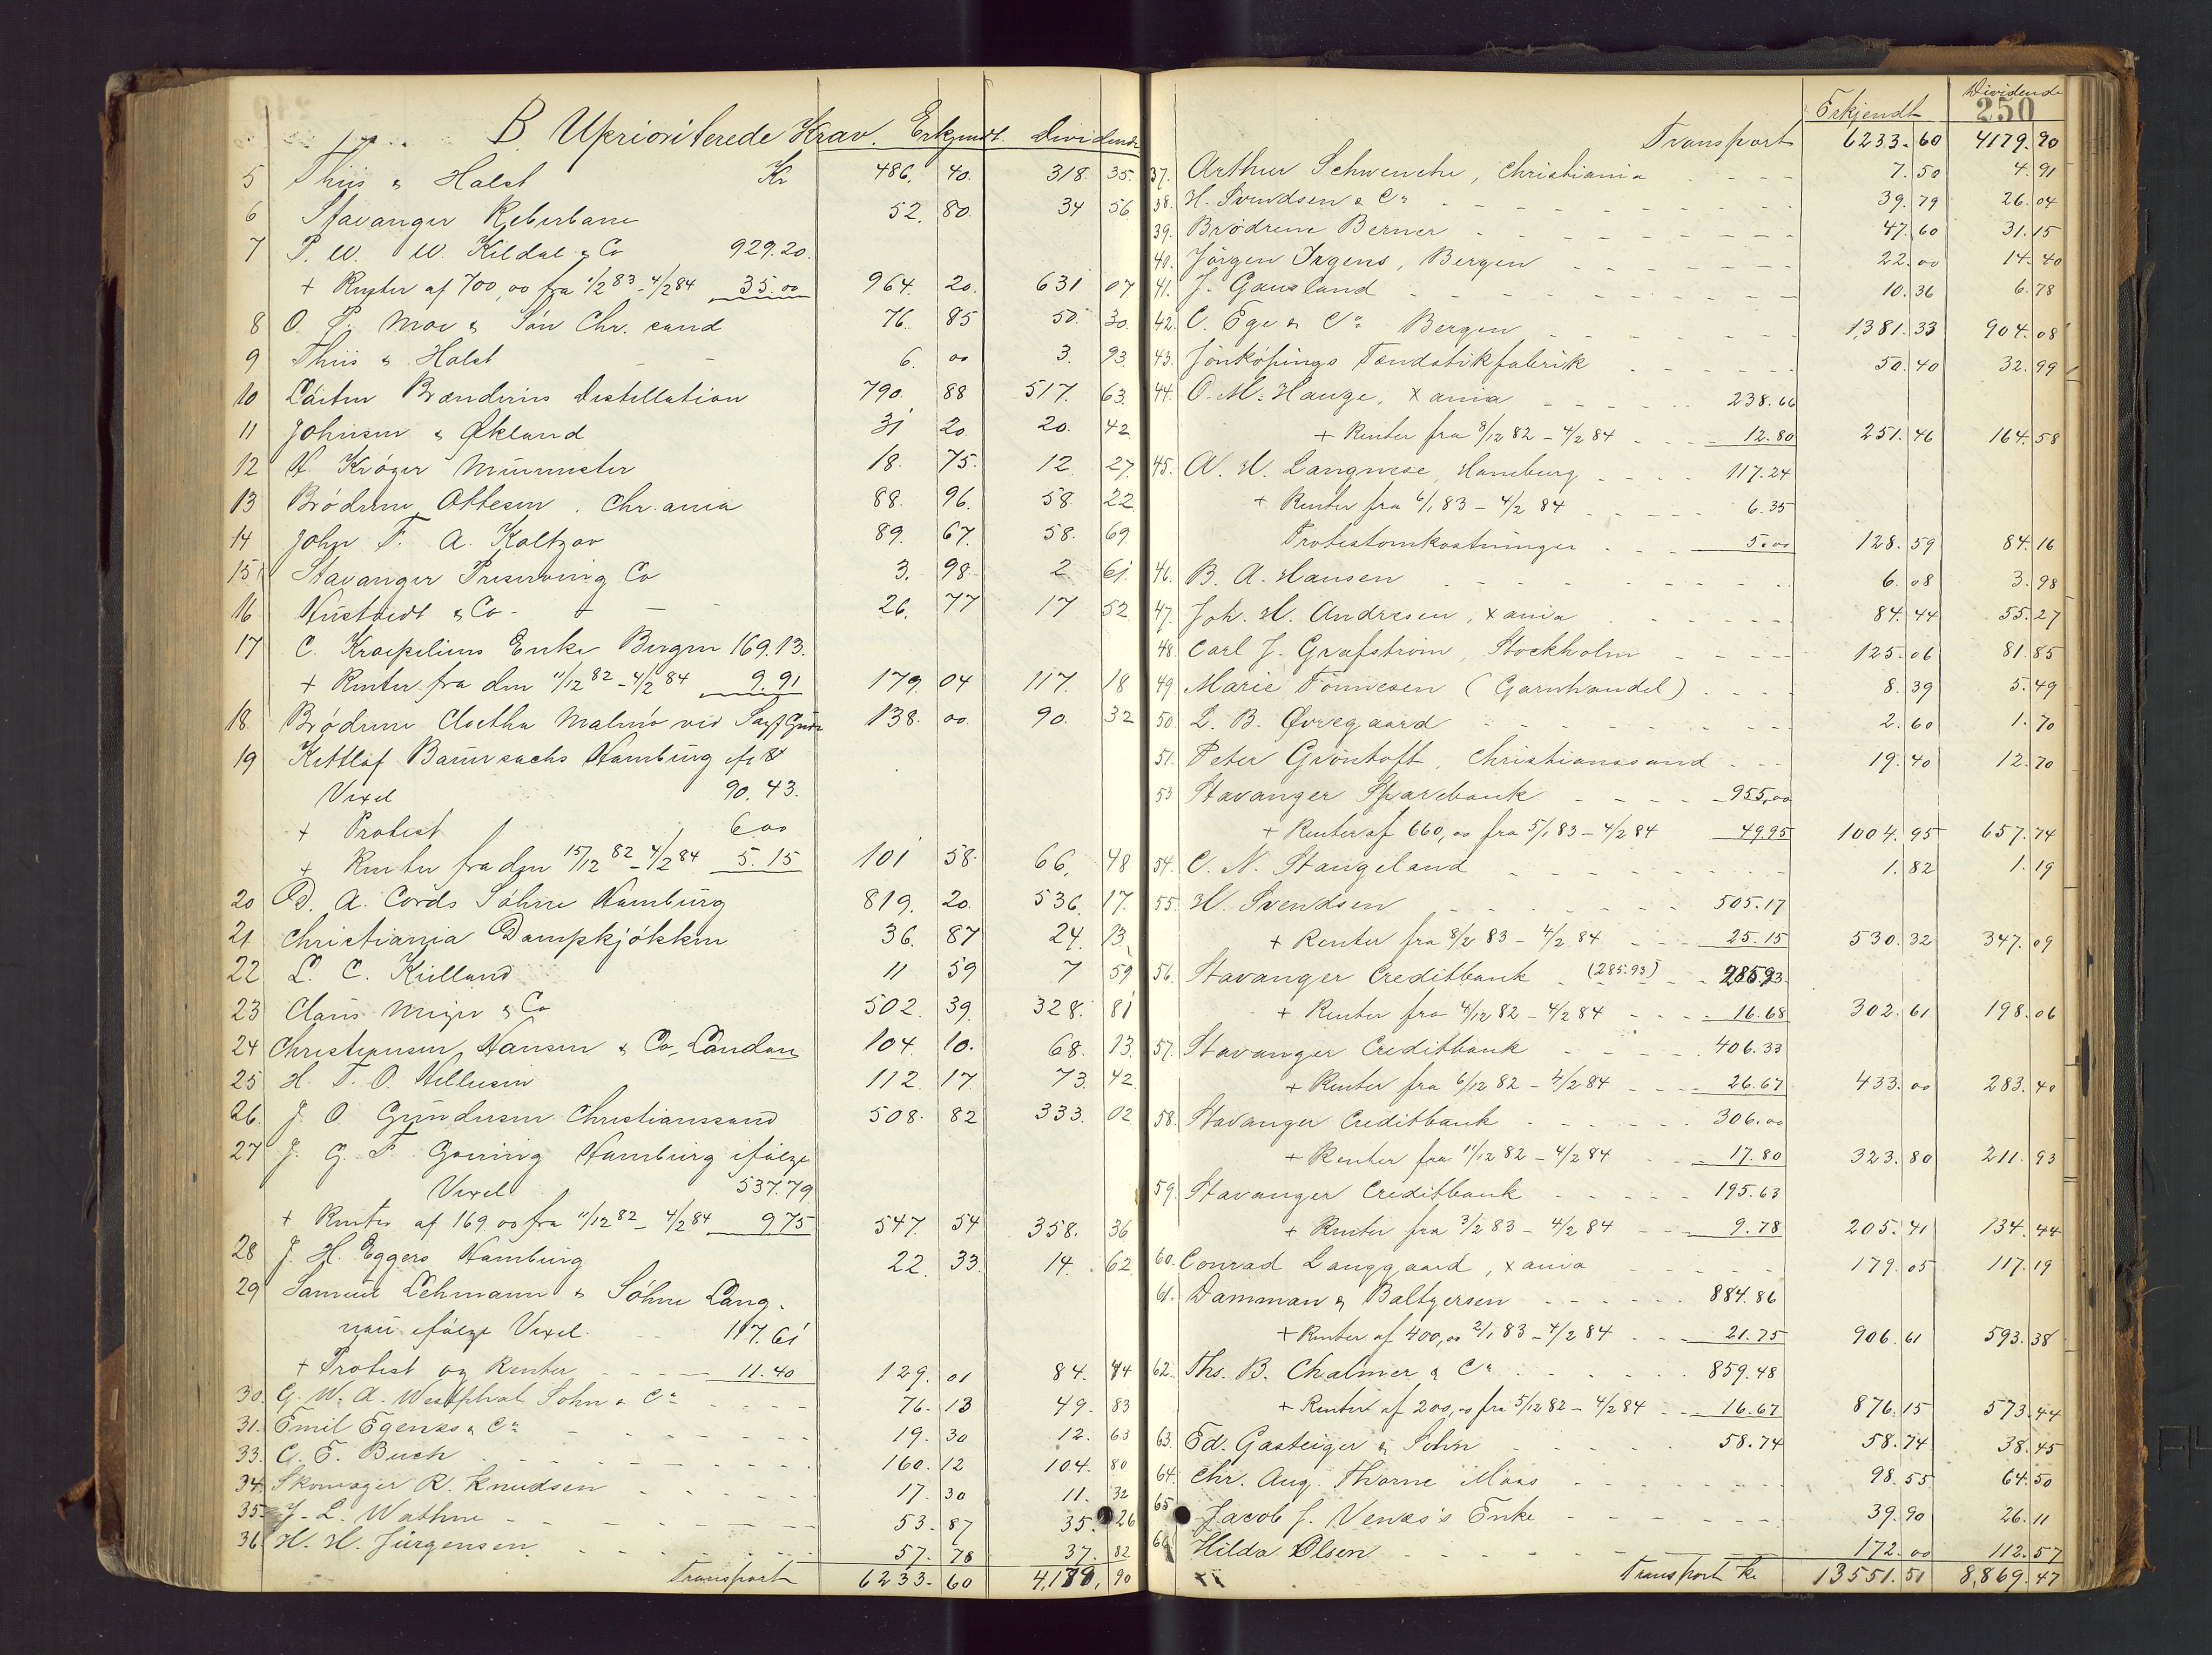 B. Uprioriterede Krav. Erkjendt. Dividende
5 Thiis & Halst Kr 486. 40. 318 35.
6 Stavanger Reberbane 52. 80. 34 56
7 P. W. W. Kildal & Co 929.20.
+ Renter af 700,00 fra 1/2 83 - 4/2 84 35.00 964. 20. 631 07
8 O. P. Moe & Sön Chr. sand 76. 85 50. 30.
9 Thiis & Halst 6. 00 3. 93.
10 Löiten Brænderies Destillation 790. 88 517. 63.
11 Johnsen & Økland 31 20. 20. 42
12 H. Kröger 18. 75. 12 27.
13 Brödrene Ottesen. Chr.ania 88. 96. 58. 22
14 John F. A. Koltzov 89. 67. 58. 69
15 Stavanger Preserving Co 3. 98. 2 61
16 Hustvedt & Co - 26. 77 17 52
17 C. Kraepeliens Enke Bergen 169.13.
+ Renter fra den 11/12 82 - 4/2 84 9.91 179. 04 117. 18
18 Brödrene Cloetta Malmö ved 138. 00. 90. 32
19 Baursachs Hamburg
Vexel 90. 43.
+ Protest 6.00
+ Renter fra den 15/12 82 - 4/2 84 5.15 101 58. 66. 48
20 D. A. Cords Söhne Hamburg 819. 20. 536. 17.
21 Christiania Dampkjökken 36. 87 24. 13
22 L. C. Kielland 11 59 7 59
23 Claus Meyer & Co 502. 39. 328. 81
24 Christiansen, Hansen & Co, London 104. 10. 68. 13.
25 H. T. O. Hellesen 112. 17 73. 42
26 J. O. Gundersen Christianssand 508. 82 333. 02
27 J. G. F. Goering Hamburg ifölge
Vexel 537.79
+ Renter af 169.00 fra 11/12 82 - 4/2 84 9.75 547. 54 358. 36
28 J. H. Eggers Hamburg 22. 33. 14. 62
29 Samuel Lehmann & Söhne Lang-
nau ifölge Vexel 117.61
+ Protest og Renter 11.40 129. 01 84. 44
30. G. W. A. Westphal Sohn & Co 76. 13 49. 83
31. Emil Egenæs & Co 19. 30 12. 63
33. C. E. Buch 160. 12 104. 80
34. Skomager R. Knudsen 17. 30 11. 32
35. J. L. Wathne 53. 87 35. 26
36. H. H. Jürgensen 57. 78 37. 82
Transport 6233. 60 4,179, 90
Erkjendt Dividende
250
Transport 6233. 60 4179. 90
37. Arthur Schwencke, Christiania 7. 50 4. 91
38. H. Svendsen & Co 39. 79 26. 04
39. Brødrene Berner 47. 60 31. 15
40. Jörgen Irgens, Bergen 22. 00 14. 40
41. J. Gausland 10. 36 6. 78
42. C. Ege & Co Bergen 1,381. 33 904. 08
43. Jönköpings Tændstikfabrik 50. 40 32. 99
44. O. M. Hauge, Xania 238.66
+ Renter fra 8/12 82 - 4/2 84 12.80 251. 46 164. 58
45. A. H. Langnese, Hamburg 117.24
+ Renter fra 6/1 83 - 4/2 84 6.35
Protestomkostninger 5.00 128. 59 84. 16
46. B. A. Hansen 6. 08 3. 98
47. Joh. H. Andresen, Xania 84. 44 55. 27
48. Carl J. Grafström, Stockholm 125. 06 81. 85
49. Marie Tönnesen (Garnhandel) 8. 39 5. 49
50. L. B. Øvregaard 2. 60 1. 70
51. Peter Gröntoft, Christianssand 19. 40 12. 70
53 Stavanger Sparebank 955,00
+ Renter af 660,00 fra 5/1 83 - 4/2 84 49.95 1004. 95 657. 74
54. C. N. Stangeland 1. 82 1. 19
55. H. Svendsen 505.17
+ Renter fra 8/2 83 - 4/2 84 25.15 530. 32 347. 09
56. Stavanger Creditbank (285.93) 285.93
+ Renter fra 4/12 82 - 4/2 84 16.68 302. 61 198. 06
57. Stavanger Creditbank 406.33
+ Renter fra 6/12 82 - 4/2 84 26.67 433. 00 283. 40
58. Stavanger Creditbank 306.00
+ Renter fra 11/12 82 - 4/2 84 17.80 323. 80 211. 93
59. Stavanger Creditbank 195.63
+ Renter fra 3/2 83 - 4/2 84 9.78 205. 41 134. 44
60. Conrad Langgaard, Xania 179. 05 117. 19
61. Damman & Baltzersen 884.86
+ Renter af 400,00 2/1 83 - 4/2 84 21.75 906. 61 593. 38
62. Ths. B. Chalmer & Co 859.48
+ Renter af 200,00 fra 5/12 82 - 4/2 84 16.67 876. 15 573. 44
63. Ed. Gasteiger & Sohn 58.74 58. 74 38. 45
64. Chr. Aug. Thorne Moss 98. 55 64. 50
65 Jacob J. Venæs's Enke 39. 90 26. 11
66 Hilda Olsen 172. 00 112. 57
Transport Kr 13551. 51 8,869. 47